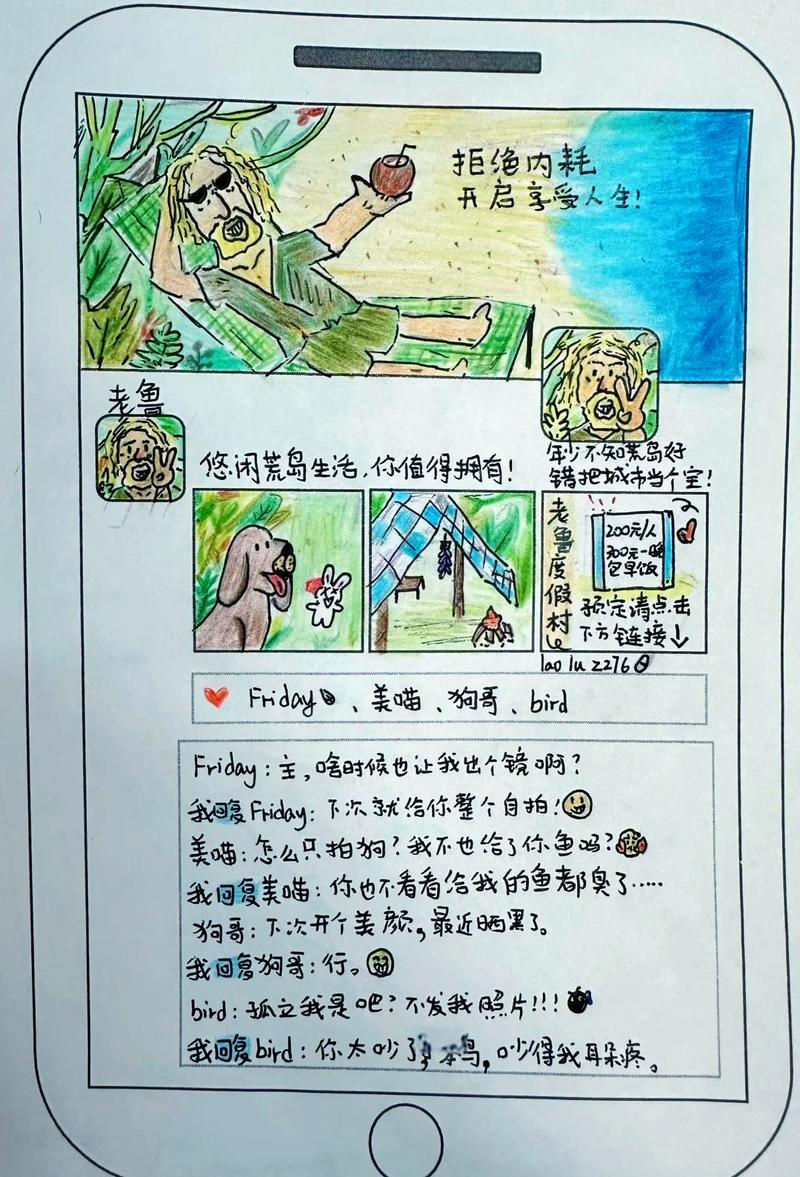 拒绝内耗
开启享受人生!
老鲁
年少不知荒岛好
错把城市当个宝!
悠闲荒岛生活,你值得拥有!
老鲁度假村
200元/人
300元一晚
包早饭
预定请点击
下方链接↓
lao lu 2276
Friday、美喵、狗哥、bird
Friday:主,啥时候也让我出个镜啊?
我回复Friday:下次就给你整个自拍!
美喵:怎么只拍狗?我不也给了你鱼吗?
我回复美喵:你也不看看给我的鱼都臭了……
狗哥:下次开个美颜,最近晒黑了。
我回复狗哥:行。
bird:孤立我是吧?不发我照片!!!
我回复bird:你太吵了,鸟,吵得我耳朵疼。